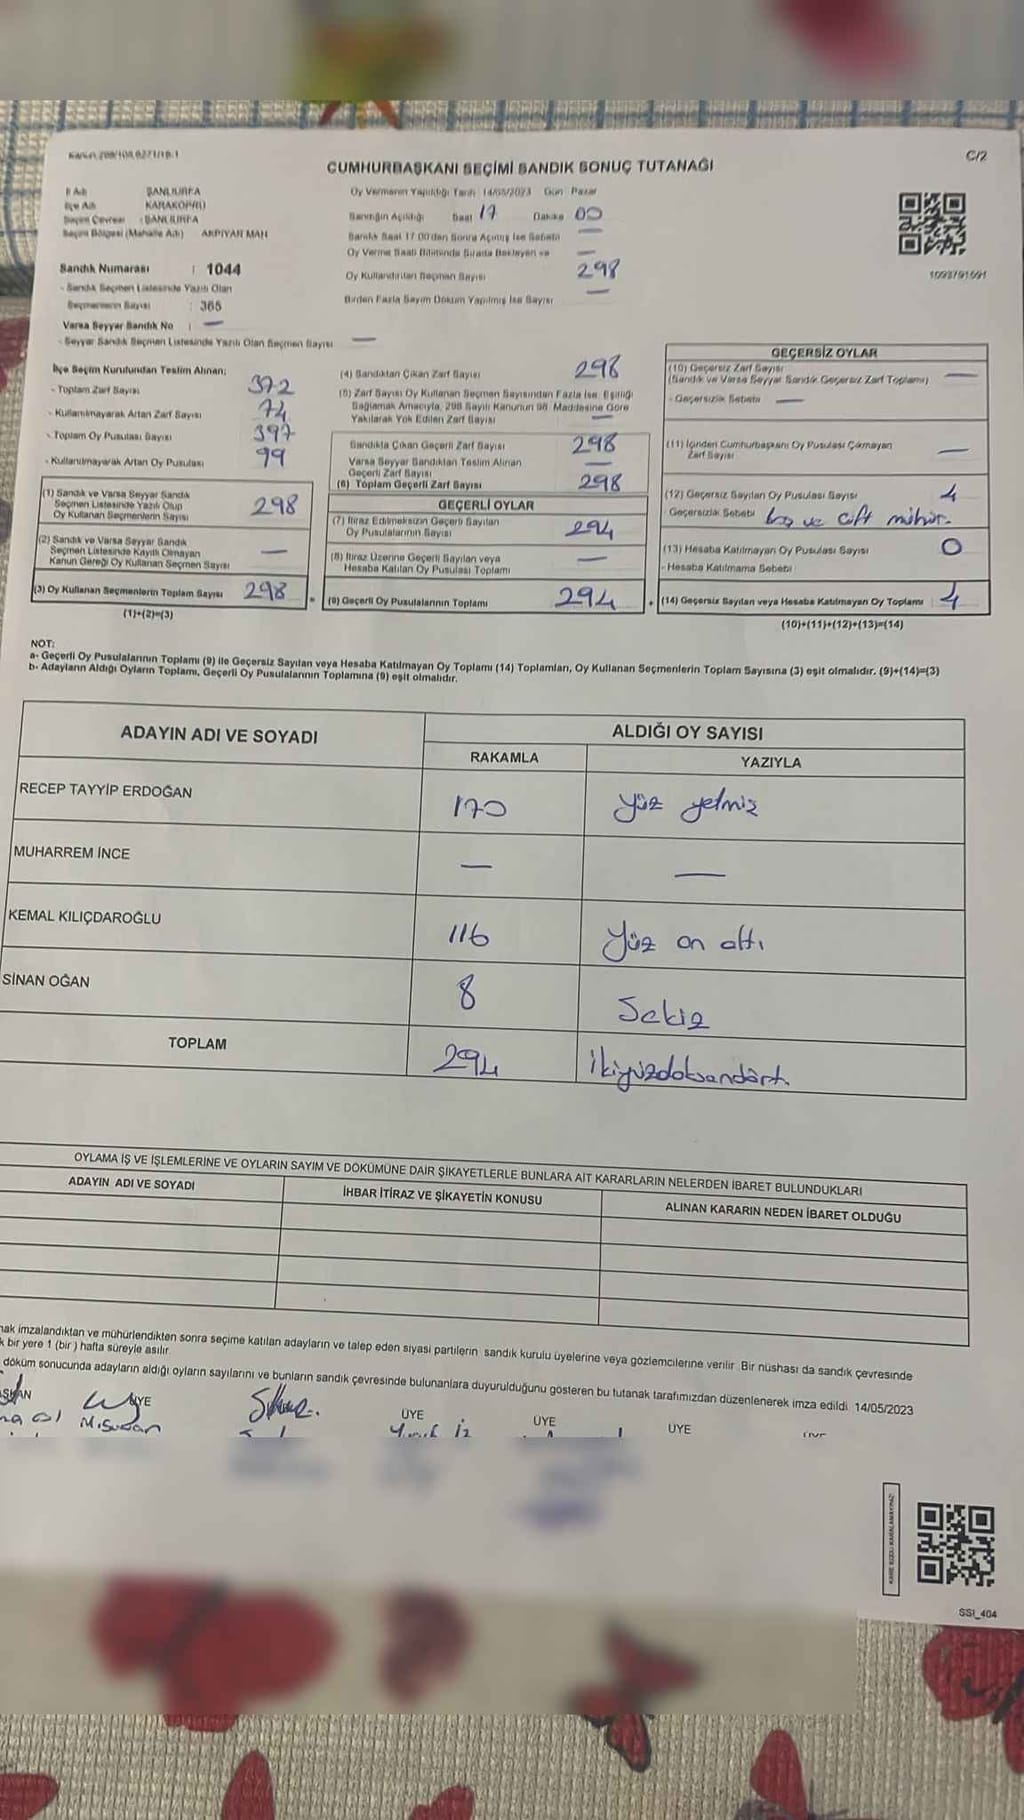 Kanun 298/108,6271/18-1
C/2
CUMHURBAŞKANI SEÇİMİ SANDIK SONUÇ TUTANAĞI
İl Adı ŞANLIURFA
İlçe Adı KARAKÖPRÜ
Seçim Çevresi : ŞANLIURFA
Seçim Bölgesi (Mahalle Adı) AKPIYAR MAH
Sandık Numarası : 1044
- Sandık Seçmen Listesinde Yazılı Olan
Seçmenlerin Sayısı : 365
Varsa Seyyar Sandık No : —
- Seyyar Sandık Seçmen Listesinde Yazılı Olan Seçmen Sayısı —
Oy Vermenin Yapıldığı Tarih 14/05/2023 Gün Pazar
Sandığın Açıldığı Saat 17 Dakika 00
Sandık Saat 17:00'den Sonra Açılmış İse Sebebi —
Oy Verme Saati Bitiminde Sırada Bekleyen ve —
Oy Kullandırılan Seçmen Sayısı 298
Birden Fazla Sayım Döküm Yapılmış İse Sayısı —
1093791091
İlçe Seçim Kurulundan Teslim Alınan;
- Toplam Zarf Sayısı 372
- Kullanılmayarak Artan Zarf Sayısı 74
- Toplam Oy Pusulası Sayısı 397
- Kullanılmayarak Artan Oy Pusulası 99
(1) Sandık ve Varsa Seyyar Sandık
Seçmen Listesinde Yazılı Olup
Oy Kullanan Seçmenlerin Sayısı 298
(2) Sandık ve Varsa Seyyar Sandık
Seçmen Listesinde Kayıtlı Olmayan
Kanun Gereği Oy Kullanan Seçmen Sayısı —
(3) Oy Kullanan Seçmenlerin Toplam Sayısı 298
(1)+(2)=(3)
(4) Sandıktan Çıkan Zarf Sayısı 298
(5) Zarf Sayısı Oy Kullanan Seçmen Sayısından Fazla İse, Eşitliği
Sağlamak Amacıyla, 298 Sayılı Kanunun 98. Maddesine Göre
Yakılarak Yok Edilen Zarf Sayısı —
Sandıkta Çıkan Geçerli Zarf Sayısı 298
Varsa Seyyar Sandıktan Teslim Alınan
Geçerli Zarf Sayısı —
(6) Toplam Geçerli Zarf Sayısı 298
GEÇERLİ OYLAR
(7) İtiraz Edilmeksizin Geçerli Sayılan
Oy Pusulalarının Sayısı 294
(8) İtiraz Üzerine Geçerli Sayılan veya
Hesaba Katılan Oy Pusulası Toplamı —
= (9) Geçerli Oy Pusulalarının Toplamı 294
GEÇERSİZ OYLAR
(10) Geçersiz Zarf Sayısı
(Sandık ve Varsa Seyyar Sandık Geçersiz Zarf Toplamı) —
- Geçersizlik Sebebi —
(11) İçinden Cumhurbaşkanı Oy Pusulası Çıkmayan
Zarf Sayısı —
(12) Geçersiz Sayılan Oy Pusulası Sayısı 4
- Geçersizlik Sebebi boş ve çift mühür.
(13) Hesaba Katılmayan Oy Pusulası Sayısı 0
- Hesaba Katılmama Sebebi
+ (14) Geçersiz Sayılan veya Hesaba Katılmayan Oy Toplamı 4
(10)+(11)+(12)+(13)=(14)
NOT:
a- Geçerli Oy Pusulalarının Toplamı (9) ile Geçersiz Sayılan veya Hesaba Katılmayan Oy Toplamı (14) Toplamları, Oy Kullanan Seçmenlerin Toplam Sayısına (3) eşit olmalıdır. (9)+(14)=(3)
b- Adayların Aldığı Oyların Toplamı, Geçerli Oy Pusulalarının Toplamına (9) eşit olmalıdır.
ADAYIN ADI VE SOYADI ALDIĞI OY SAYISI
RAKAMLA YAZIYLA
RECEP TAYYİP ERDOĞAN 170 yüz yetmiş
MUHARREM İNCE — —
KEMAL KILIÇDAROĞLU 116 Yüz on altı
SİNAN OĞAN 8 Sekiz
TOPLAM 294 ikiyüzdoksandört
OYLAMA İŞ VE İŞLEMLERİNE VE OYLARIN SAYIM VE DÖKÜMÜNE DAİR ŞİKAYETLERLE BUNLARA AİT KARARLARIN NELERDEN İBARET BULUNDUKLARI
ADAYIN ADI VE SOYADI İHBAR İTİRAZ VE ŞİKAYETİN KONUSU ALINAN KARARIN NEDEN İBARET OLDUĞU
nak imzalandıktan ve mühürlendikten sonra seçime katılan adayların ve talep eden siyasi partilerin sandık kurulu üyelerine veya gözlemcilerine verilir. Bir nüshası da sandık çevresinde
k bir yere 1 (bir) hafta süreyle asılır.
döküm sonucunda adayların aldığı oyların sayılarını ve bunların sandık çevresinde bulunanlara duyurulduğunu gösteren bu tutanak tarafımızdan düzenlenerek imza edildi. 14/05/2023
ÜYE ÜYE ÜYE ÜYE
KARE KODU KARALAMAYINIZ!
SSİ_404